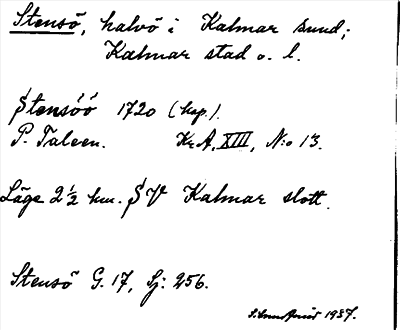 Stensö, halvö i Kalmar sund;
Kalmar stad o. l.
Stensöö 1720 (kap.).
P. Taleen. Kr.A. XIII, N:o 13.
Läge 2 ½ km. SV Kalmar slott.
Stensö G. 17, Sj: 256.
1937.